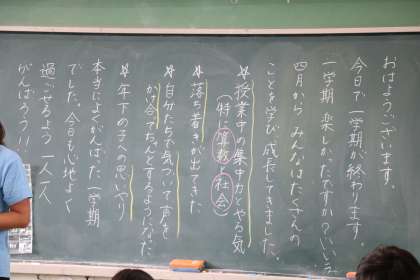 おはようございます。
今日で一学期が終わります。
一学期 楽しかったですか?
四月から みんなはたくさんの
ことを学び、成長してきました。
☆授業中の集中力とやる気
(特に算数と社会)
☆落ち着きが出てきた
☆自分たちで気づいて声を
かけ合ってちゃんとするようになった
☆年下の子への思いやり
本当によくがんばった一学期
でした。今日も心地よく
過ごせるよう 一人一人
がんばろう!!